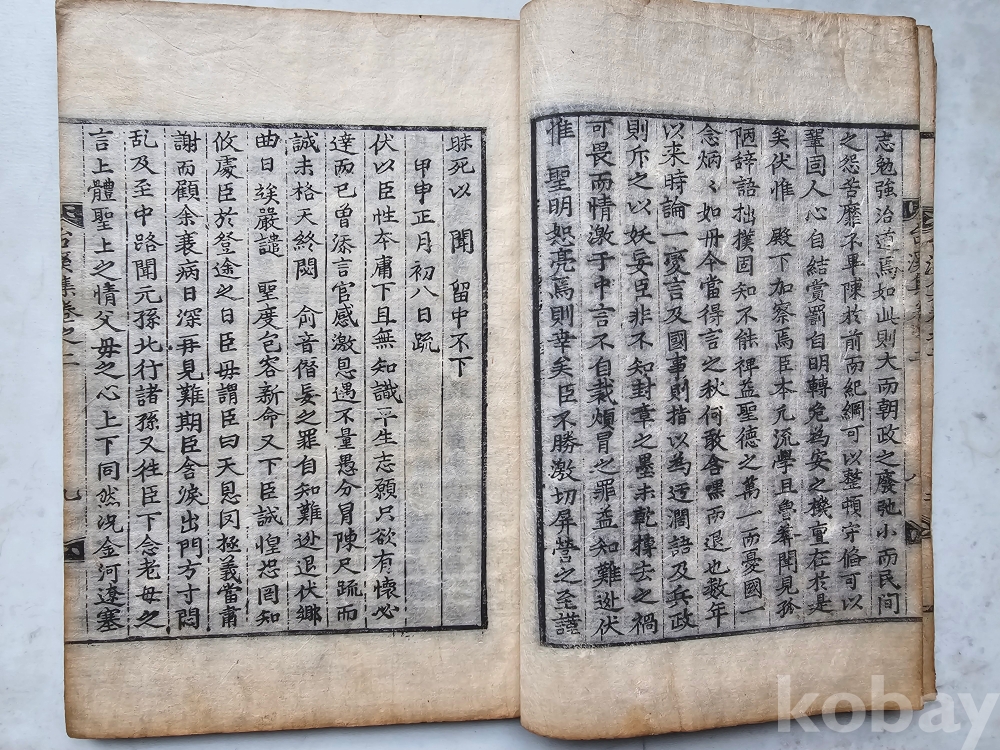 志勉強治道焉如此則大而朝政之廢弛小而民間
之怨苦靡不畢陳於前而紀綱可以整頓守備可以
鞏固人心自結賞罰自明轉危為安之機亶在於是
矣伏惟 殿下加察焉臣本元流學且魚莽聞見孤
陋辞語拙撲固知不能裨益聖德之萬一而憂國一
念炳〻如丹今當得言之秋何敢含嘿而退也數年
以来時論一変言及國事則指以為迂濶語及兵政
則斥之以妖妄臣非不知封章之墨未乾摶去之禍
可畏而情激于中言不自裁煩冒之罪益知難逃伏
惟 聖明恕亮焉則幸矣臣不勝激切屏營之至謹
昧死以 聞 留中不下
甲申正月初八日疏
伏以臣性本庸下且無知識平生志願只欲有懷必
達而已曾添言官感激恩遇不量愚分冒陳尺疏而
誠未格天終閟 俞音僭妄之罪自知難逃退伏鄉
曲日竢嚴譴 聖度包容新命又下臣誠惶恐罔知
攸處臣於登途之日臣母謂臣曰天恩罔極義當肅
謝而顧余衰病日深再見難期臣含淚出門方寸悶
乱及至中路聞元孫北行諸孫又徃臣下念老母之
言上體聖上之情父母之心上下同然况金河遼塞
台溪集卷之二
九
kobay